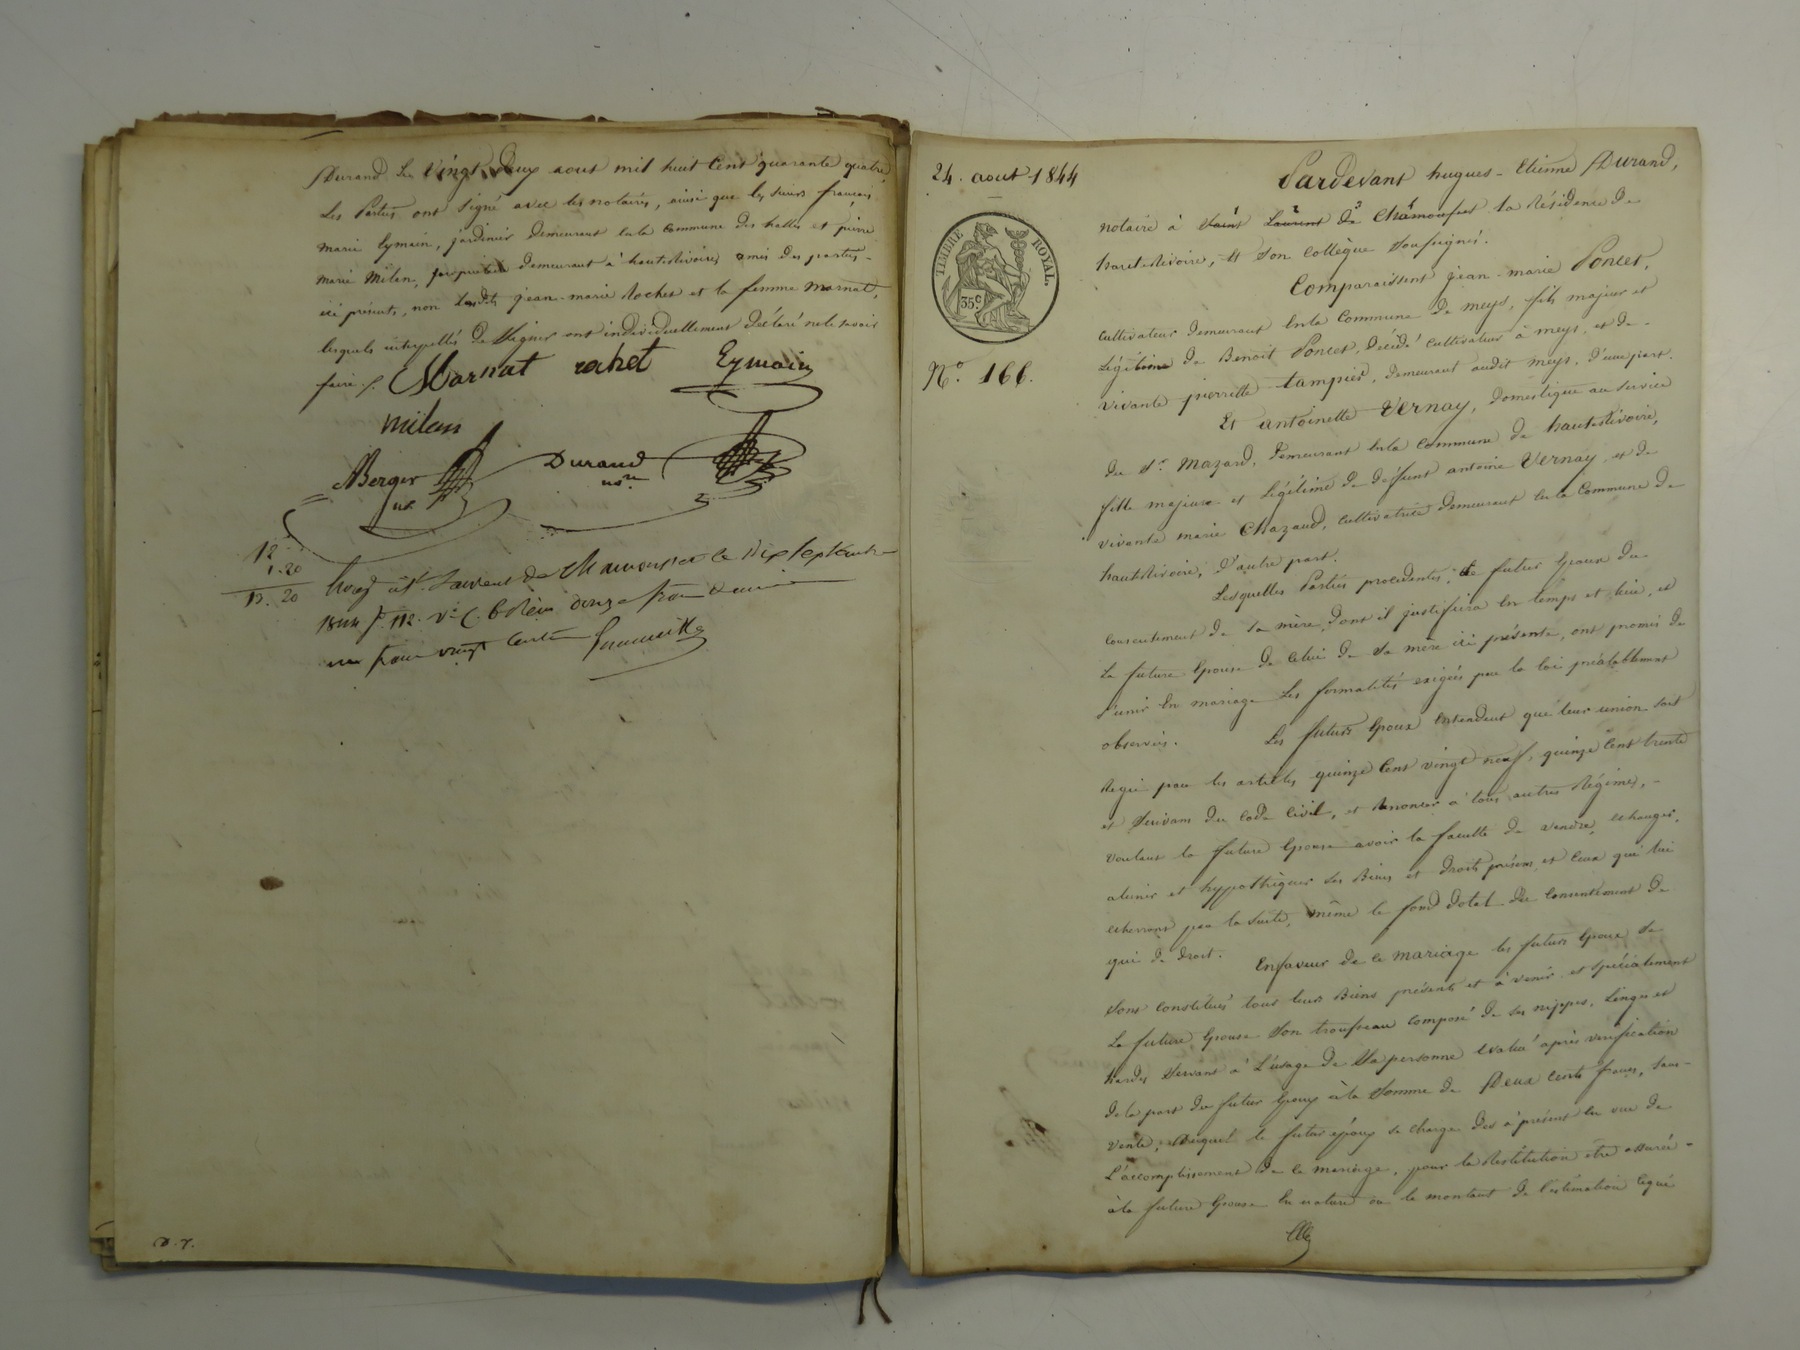 Durand Le vingt Deux aout mil huit Cent quarante quatre,
Les Parties ont signé avec les notaires, ainsi que les sieurs français
marie Eymain, jardinier demeurant en la Commune des halles et pierre
marie Milan, propriétaire demeurant à hauterivoire, amis des parties
ici présents, non lesdits jean-marie Rochet et la femme Marnat,
lesquels interpellés de Signer ont individuellement Déclaré ne le savoir
faire./.
Marnat rochet Eymain
milan
Berger
nre
Durand
nore
12
1.20
13.20
Enreg à St Laurent de Chamousset le dix septembre
1844 fo 112. vo C. 6 Reçu douze francs
un franc vingt centimes
D.7.
24. aout 1844
TIMBRE ROYAL
35c
No. 166.
Pardevant hugues-Etienne Durand,
notaire à Saint Laurent de Chamousset la Résidence de
hauterivoire, et Son Collègue Soussignés.
Comparaissent jean-marie Poncet,
cultivateur demeurant en la Commune de meys, fils majeur et
légitime de Benoit Poncet, Décédé cultivateur à meys, et de
vivante pierrette tampier, demeurant audit meys, D'une part.
Et antoinette Vernay, domestique au service
du Sr. Mazard, Demeurant en la Commune de hauterivoire,
fille majeure et Légitime de défunt antoine Vernay, et de
vivante marie Chazaud, cultivatrice demeurant en la Commune de
hauterivoire, D'autre part.
Lesquelles Parties procédantes, le futur Epoux du
Consentement de sa mère, dont il justifiera en temps et lieu, et
La future Epouse de Celui de Sa mère ici présente, ont promis de
S'unir en mariage Les formalités exigées par la loi préalablement
observées.
Les futurs Epoux Entendent que leur union soit
Régie par les articles quinze Cent vingt neuf, quinze Cent trente
et Suivans du Code Civil, et Renoncer à tous autres Régimes,
voulant la future Epouse avoir la faculté de vendre, echanger,
aliener et hyppothéquer ses Biens et droits présens et Ceux qui lui
echerront par la suite, même le fond dotal du Consentement de
qui de Droit.
En faveur de ce mariage les futurs Epoux se
Sont Constitués tous leurs Biens présents et à venir, et spécialement
La future Epouse Son trousseau composé de ses nippes, Linges et
hardes Servant à L'usage de Sa personne Evalué après vérification
de la part du futur Epoux à la Somme de Deux Cents francs, sans
vente, Duquel le futur époux se charge dès à présent en vue de
L'accomplissement de ce mariage, pour la Restitution être assurée
à la future Epouse En nature ou le montant de l'estimation Ciqué